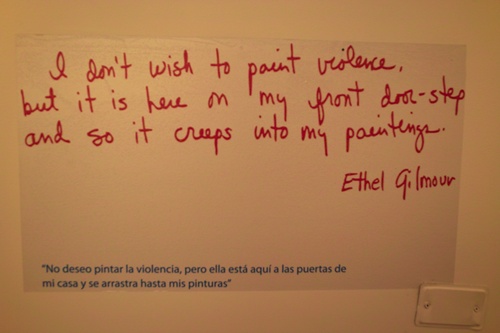 I don't wish to paint violence,
but it is here on my front door-step
and so it creeps into my paintings.
Ethel Gilmour
"No deseo pintar la violencia, pero ella está aquí a las puertas de
mi casa y se arrastra hasta mis pinturas"